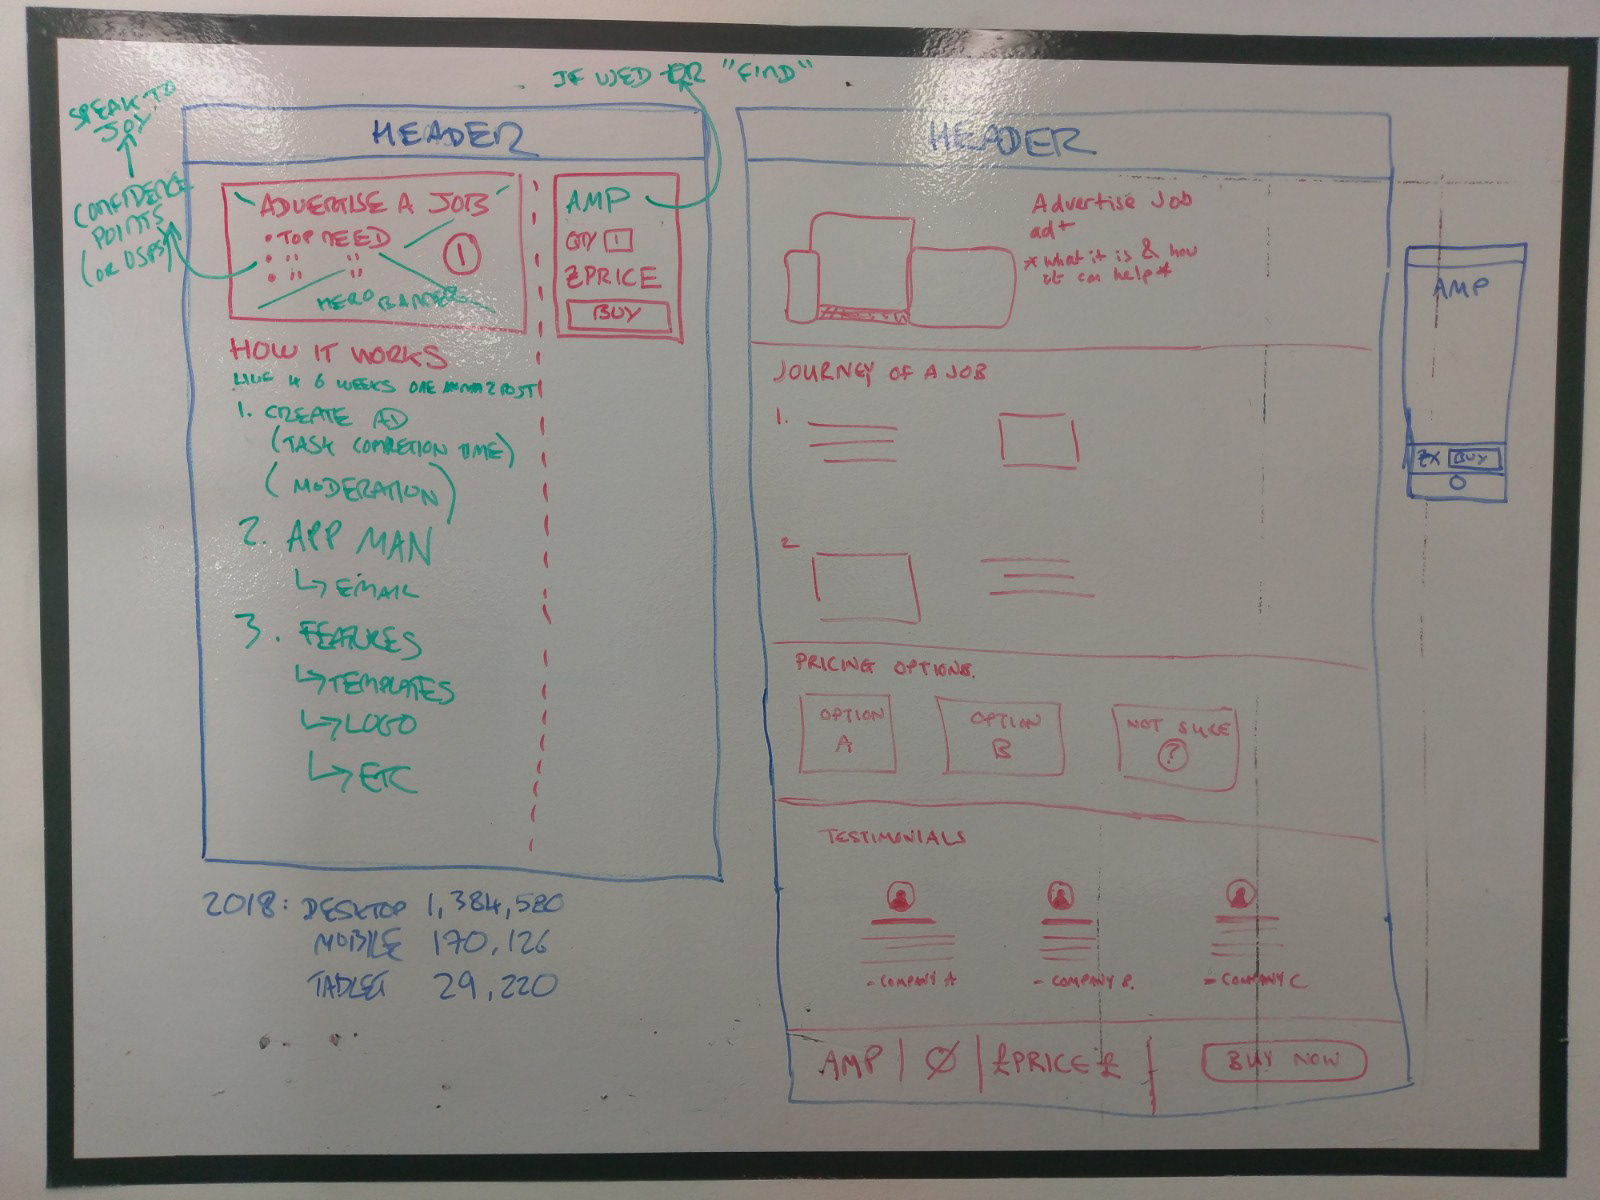 SPEAK TO
JOY
CONFIDENCE
POINTS
(OR USPS)
IF USED FOR "FIND"
HEADER
ADVERTISE A JOB
• TOP NEED
• " "
• "
1
HERO BANNER
AMP
QTY 1
£PRICE
BUY
HOW IT WORKS
LIVE 4 6 WEEKS ONE POST
1. CREATE AD
(TASK COMPLETION TIME)
(MODERATION)
2. APP MAN
↳ EMAIL
3. FEATURES
↳ TEMPLATES
↳ LOGO
↳ ETC
2018: DESKTOP 1,384,580
MOBILE 170,126
TABLET 29,220
HEADER
Advertise Job
ad+
*what it is & how
it can help*
JOURNEY OF A JOB
1.
2
PRICING OPTIONS.
OPTION
A
OPTION
B
NOT SURE
?
TESTIMONIALS
- COMPANY A
- COMPANY B.
- COMPANY C
AMP | Ø | £PRICE £ | BUY NOW
AMP
£X BUY